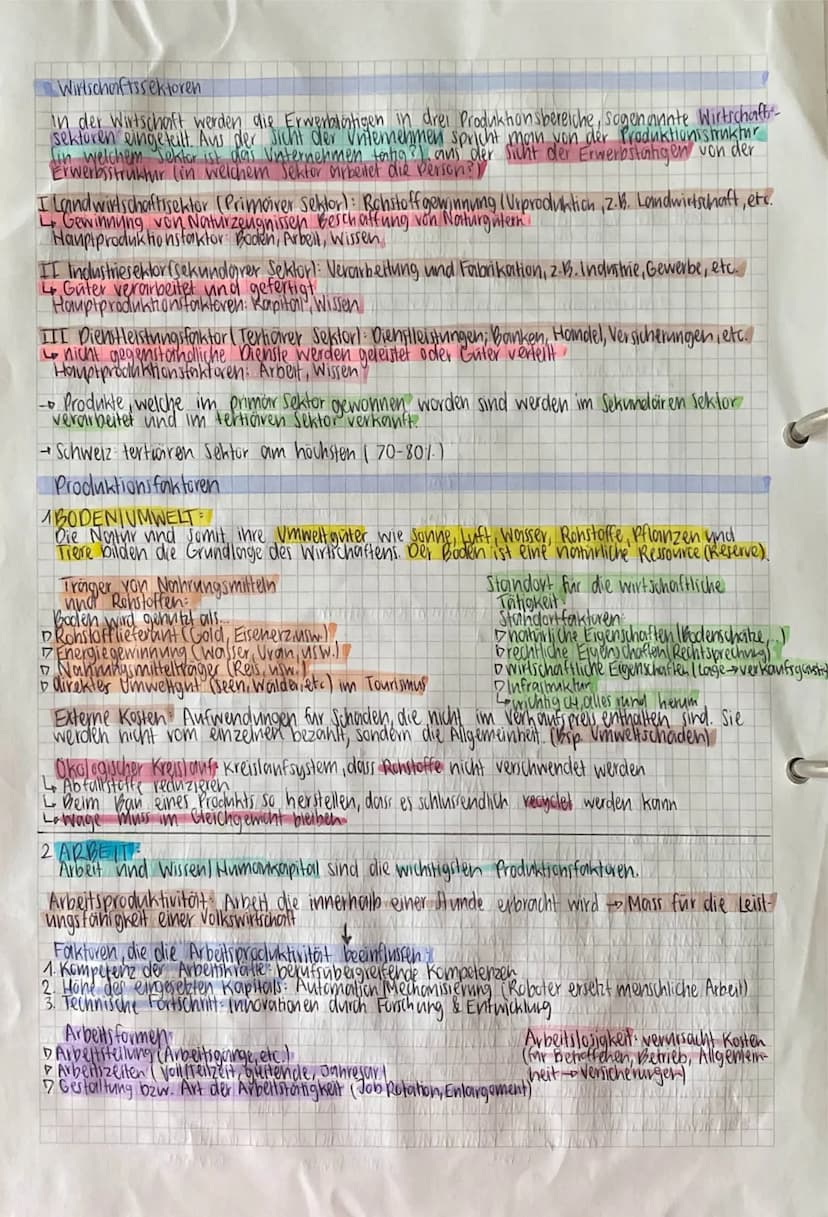 Wirtschaftssektoren
In der Wirtschaft werden die Erwerbstätigen in drei Produktionsbereiche, sogenannte Wirtschaft-
sektoren eingeteilt. Aus der Sicht der Unternehmen spricht man von der Produktionsstruktur
(in welchem Sektor ist das Unternehmen tätig?), aus der Sicht der Erwerbstätigen von der
Erwerbsstruktur (in welchem Sektor arbeitet die Person?)
I Landwirtschaftsektor (Primärer Sektor): Rohstoffgewinnung (Urproduktion, z.B. Landwirtschaft, etc.
↳ Gewinnung von Naturzeugnissen Beschaffung von Naturgütern
Hauptproduktionsfaktor: Boden, Arbeit, Wissen
II Industriesektor (Sekundärer Sektor): Verarbeitung und Fabrikation, z.B. Industrie, Gewerbe, etc.
↳ Güter verarbeitet und gefertigt
Hauptproduktionsfaktoren: Kapital, Wissen
III Dienstleistungsfaktor (Tertiärer Sektor): Dienstleistungen; Banken, Handel, Versicherungen, etc.
↳ nicht gegenständliche Dienste werden geleistet oder Güter verteilt
Hauptproduktionsfaktoren: Arbeit, Wissen
→ Produkte, welche im primär Sektor gewonnen worden sind werden im Sekundären Sektor
verarbeitet und im tertiären Sektor verkauft.
→ Schweiz: tertiären Sektor am höchsten (70-80%)
Produktionsfaktoren
1 BODEN/UMWELT:
Die Natur und somit ihre Umweltgüter wie Sonne, Luft, Wasser, Rohstoffe, Pflanzen und
Tiere bilden die Grundlage des Wirtschaftens. Der Boden ist eine natürliche Ressource (Reserve).
Träger von Nahrungsmitteln
und Rohstoffen:
Boden wird genutzt als...
▷ Rohstofflieferant (Gold, Eisenerz usw.)
▷ Energiegewinnung (Wasser, Uran, usw.)
▷ Nahrungsmittelträger (Reis, usw.)
▷ direkter Umweltgut (Seen, Wälder, etc) im Tourismus
Standort für die wirtschaftliche
Tätigkeit:
Standortfaktoren:
▷ natürliche Eigenschaften (Bodenschätze, ...)
▷ rechtliche Eigenschaften (Rechtsprechung)
▷ wirtschaftliche Eigenschaften (Lage → verkaufsgünstig
▷ Infrastruktur
↳ wichtig alles rund herum
Externe Kosten: Aufwendungen für Schäden, die nicht im Verkaufspreis enthalten sind. Sie
werden nicht vom einzelnen bezahlt, sondern die Allgemeinheit. (Bsp. Umweltschäden)
Ökologischer Kreislauf: Kreislaufsystem, dass Rohstoffe nicht verschwendet werden
↳ Abfallstoffe reduzieren
↳ Beim Bau eines Produkts so herstellen, dass es schlussendlich recyclet werden kann
↳ Wage muss im Gleichgewicht bleiben
2 ARBEIT:
Arbeit und Wissen/Humankapital sind die wichtigsten Produktionsfaktoren.
Arbeitsproduktivität: Arbeit die innerhalb einer Stunde erbracht wird → Mass für die Leist-
ungsfähigkeit einer Volkswirtschaft
↓
Faktoren, die die Arbeitsproduktivität beeinflussen:
1. Kompetenz der Arbeitskräfte: berufsübergreifende Kompetenzen
2. Höhe des eingesetzten Kapitals: Automation/Mechanisierung (Roboter ersetzt menschliche Arbeit)
3. Technische Fortschritt: Innovationen durch Forschung & Entwicklung
Arbeitsformen:
▷ Arbeitsteilung (Arbeitsgänge, etc.)
▷ Arbeitszeiten (Voll/Teilzeit, gleitende, Jahresar)
▷ Gestaltung bzw. Art der Arbeitstätigkeit (Job Rotation, Enlargement)
Arbeitslosigkeit: verursacht Kosten
(für Betroffenen, Betrieb, Allgemein-
heit → Versicherungen)